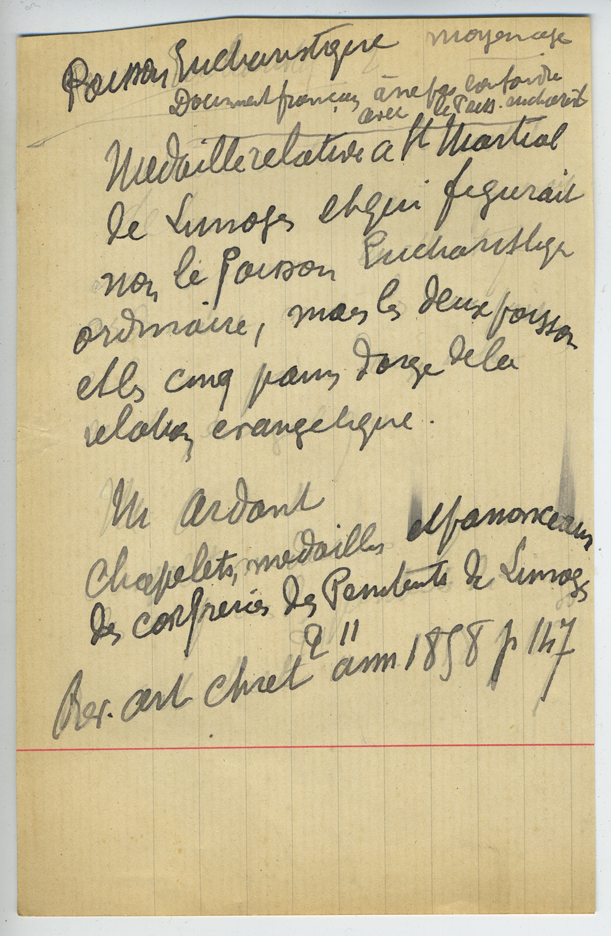 Poisson Eucharistique moyenage
Document français à ne pas confondre
avec le Poiss. eucharist
Medaille relative a St Martial
de Limoges et qui figurait
non le Poisson Eucharistique
ordinaire, mais les deux poisson
et les cinq pains d'orge de la
relation evangelique.
M Ardant
Chapelets, medailles et panonceaux
des confreries des Penitents de Limoges
Rev. art chret 2 11 ann 1858 p 147